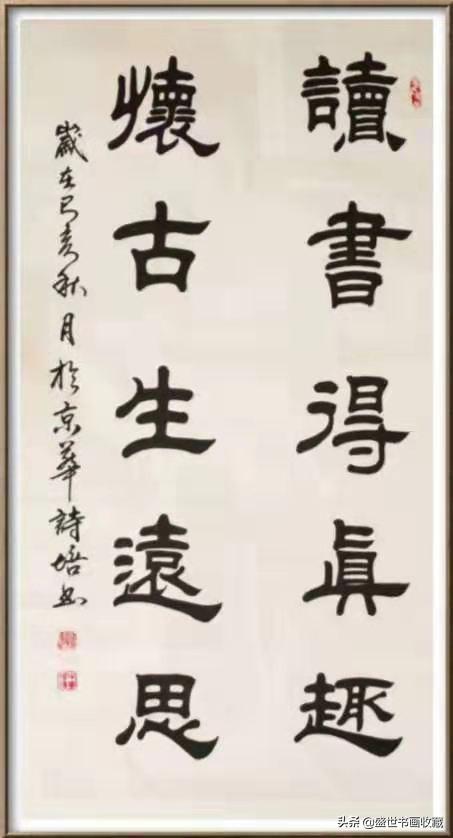 讀書得真趣
懷古生遠思
歲在己亥秋月於京華詩培书
头条@盛世书画收藏